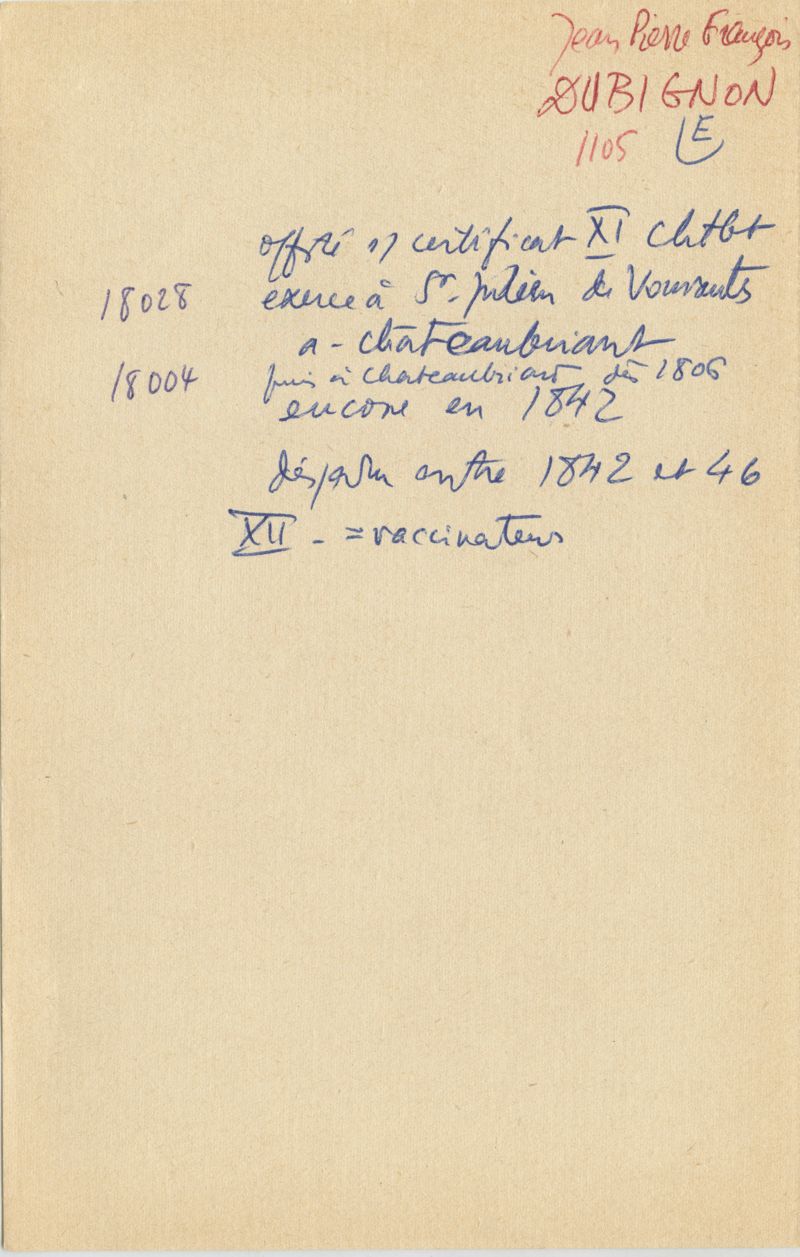 Jean Pierre François
DUBIGNON
1105 E
certificat XI Chtbt
18028 exerce à St. Julien de Vouvantes
a - chateaubriant
18004 puis à Chateaubriant dès 1806
encore en 1842
disparu entre 1842 et 46
XII - = vaccinateurs